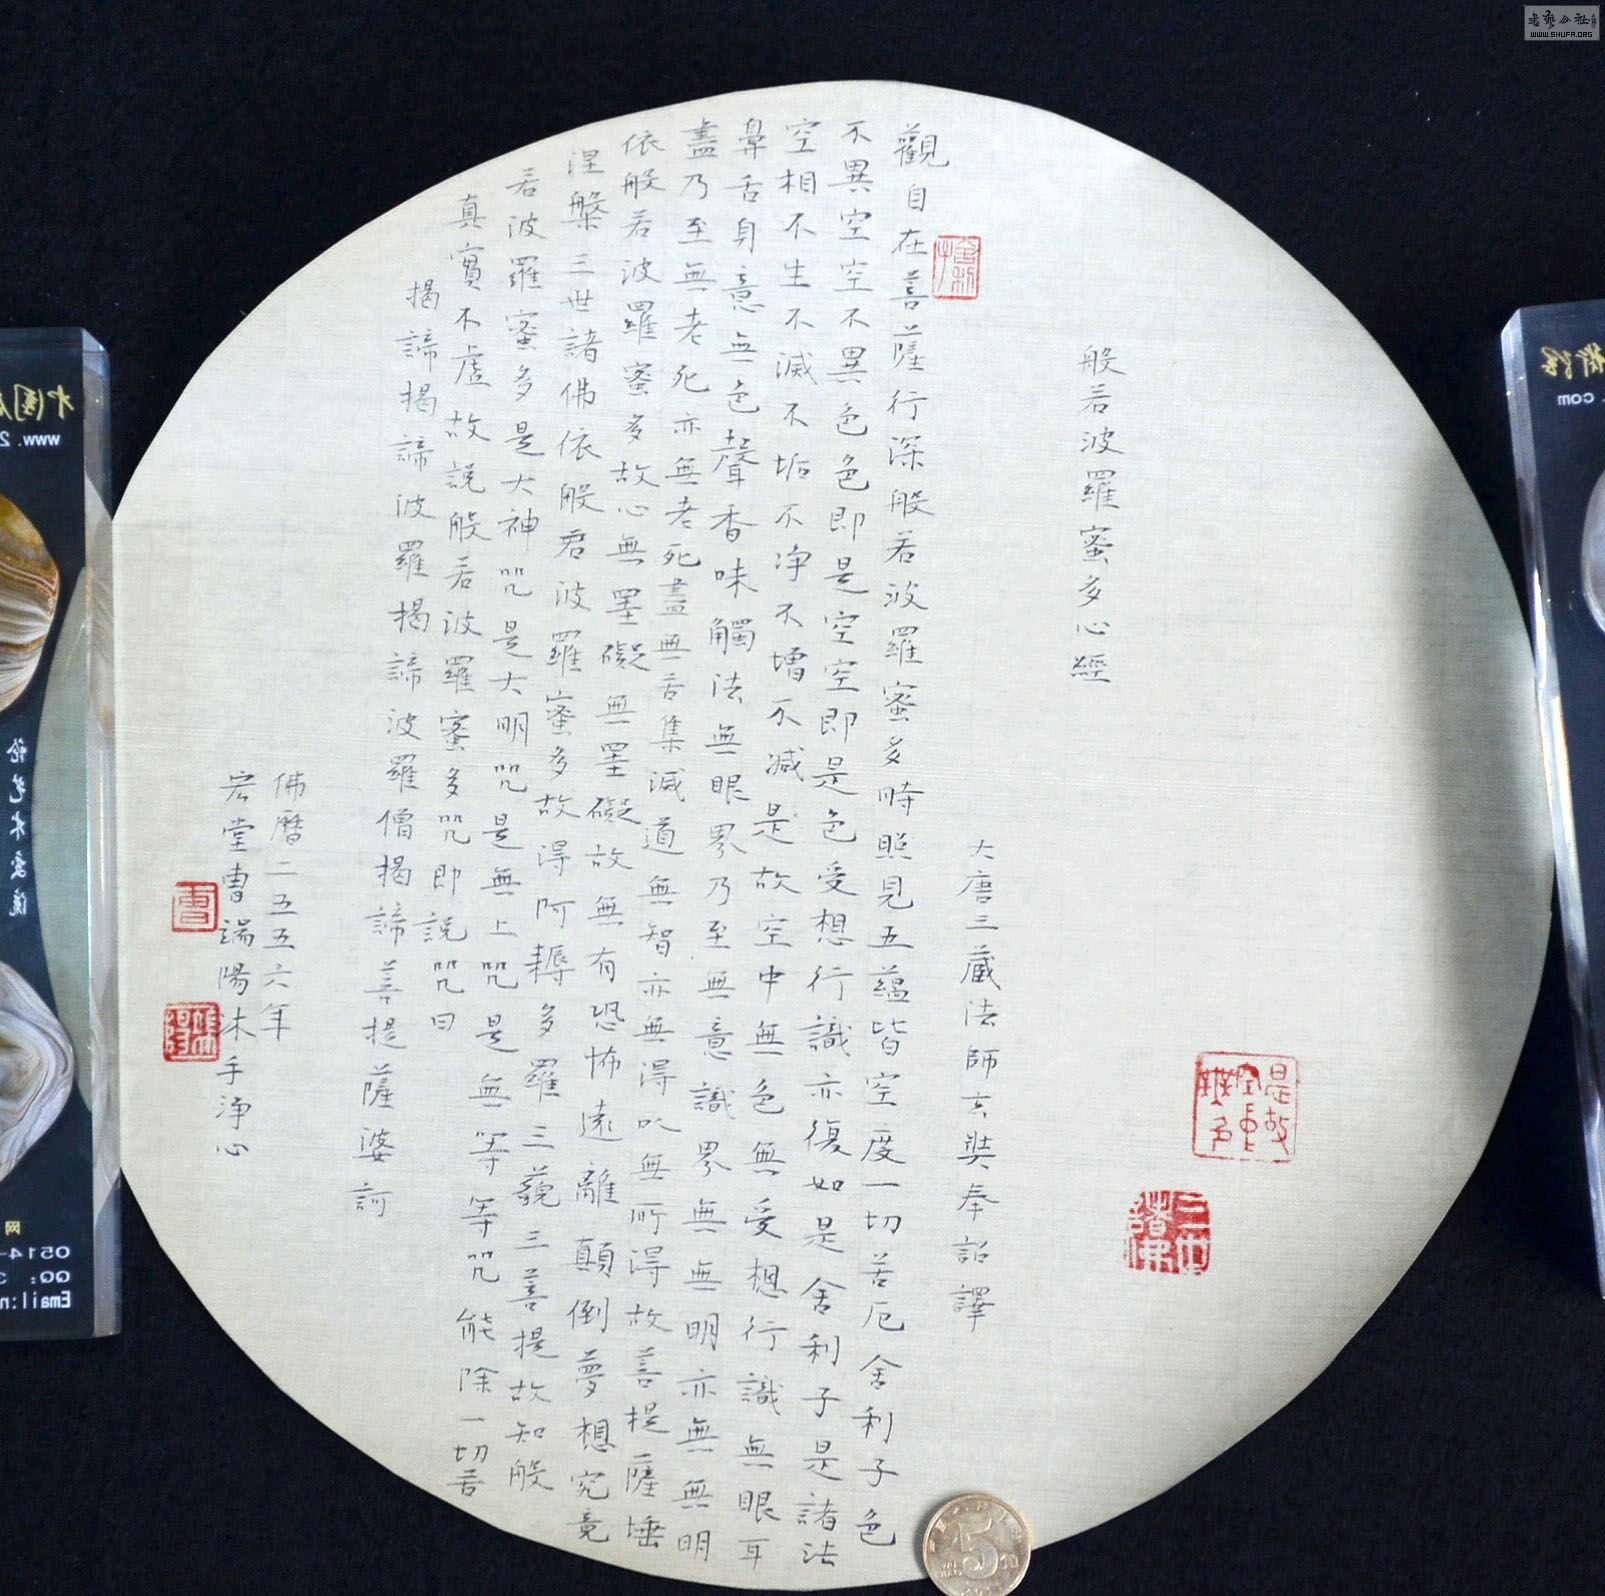 般若波羅蜜多心經
大唐三藏法師玄奘奉詔譯
觀自在菩薩行深般若波羅蜜多時照見五蘊皆空度一切苦厄舍利子色
不異空空不異色色即是空空即是色受想行識亦復如是舍利子是諸法
空相不生不滅不垢不淨不增不減是故空中無色無受想行識無眼耳
鼻舌身意無色聲香味觸法無眼界乃至無意識界無無明亦無無明
盡乃至無老死亦無老死盡無苦集滅道無智亦無得以無所得故菩提薩埵
依般若波羅蜜多故心無罣礙無罣礙故無有恐怖遠離顛倒夢想究竟
涅槃三世諸佛依般若波羅蜜多故得阿耨多羅三藐三菩提故知般
若波羅蜜多是大神咒是大明咒是無上咒是無等等咒能除一切苦
真實不虛故說般若波羅蜜多咒即說咒曰
揭諦揭諦波羅揭諦波羅僧揭諦菩提薩婆訶
佛曆二五五六年
宏堂曹端陽沐手淨心
曹
端陽
是故空中無色
三世諸佛
5
书艺公社
WWW.SHUFA.ORG